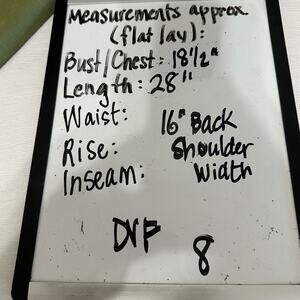 Measurements approx.
(flat lay):
Bust/Chest: 18½"
Length: 28"
Waist:
16" Back
Rise:
Shoulder
Inseam:
Width
DVF
8